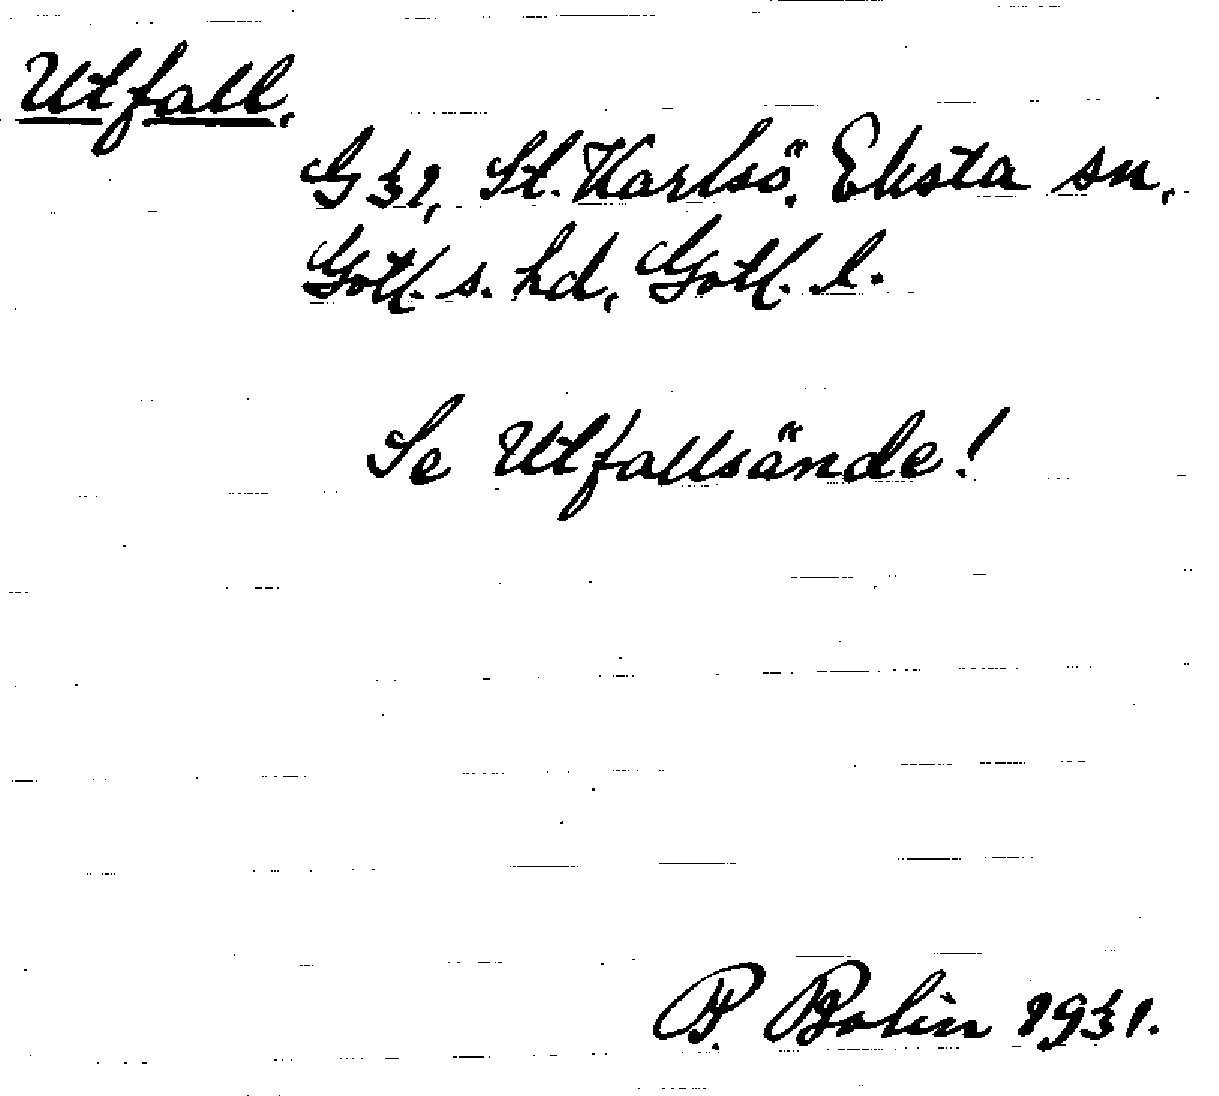 Utfall.
G 31, St. Karlsö, Eksta sn,
Gotl. s. hd, Gotl. l.
Se Utfallsände!
P. Bolin 1931.